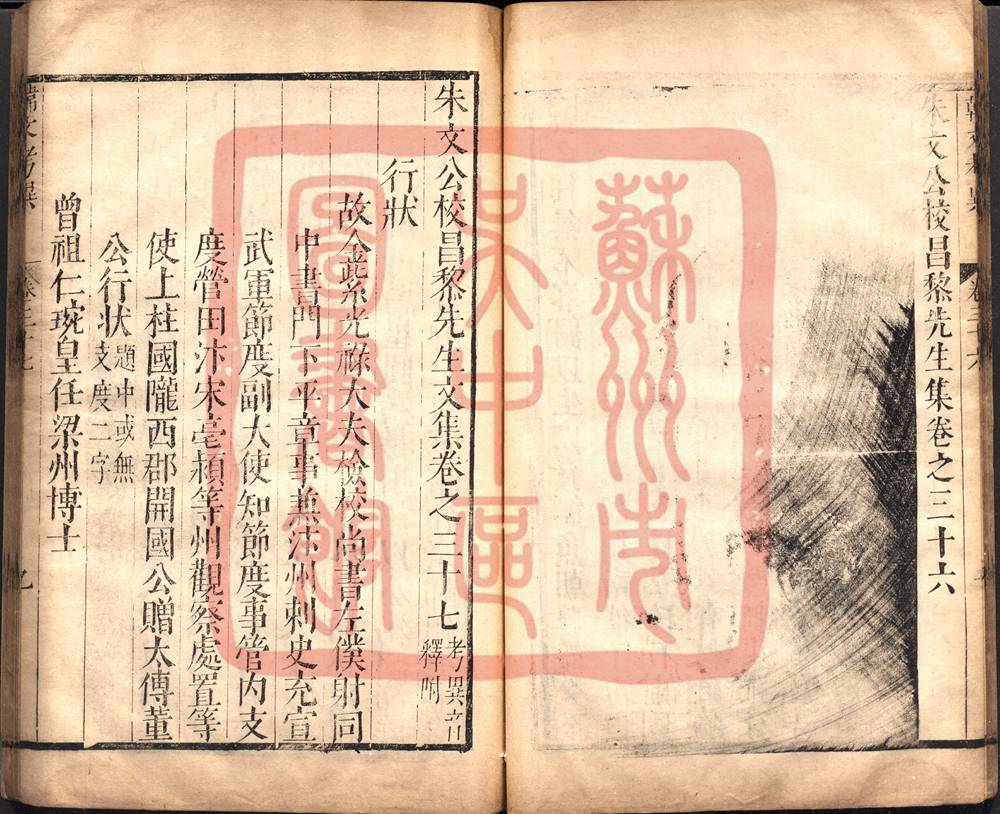 韓文考異
卷三十六
朱文公校昌黎先生集卷之三十六
朱文公校昌黎先生文集卷之三十七
考異音
釋附
行狀
故金紫光祿大夫檢校尚書左僕射同
中書門下平章事兼汴州刺史充宣
武軍節度副大使知節度事管内支
度營田汴宋亳潁等州觀察處置等
使上柱國隴西郡開國公贈太傅董
公行狀
題中或無
支度二字
曾祖仁琬皇任梁州博士
韓文考異
卷三十七
蘇州市
吳中區
圖書館